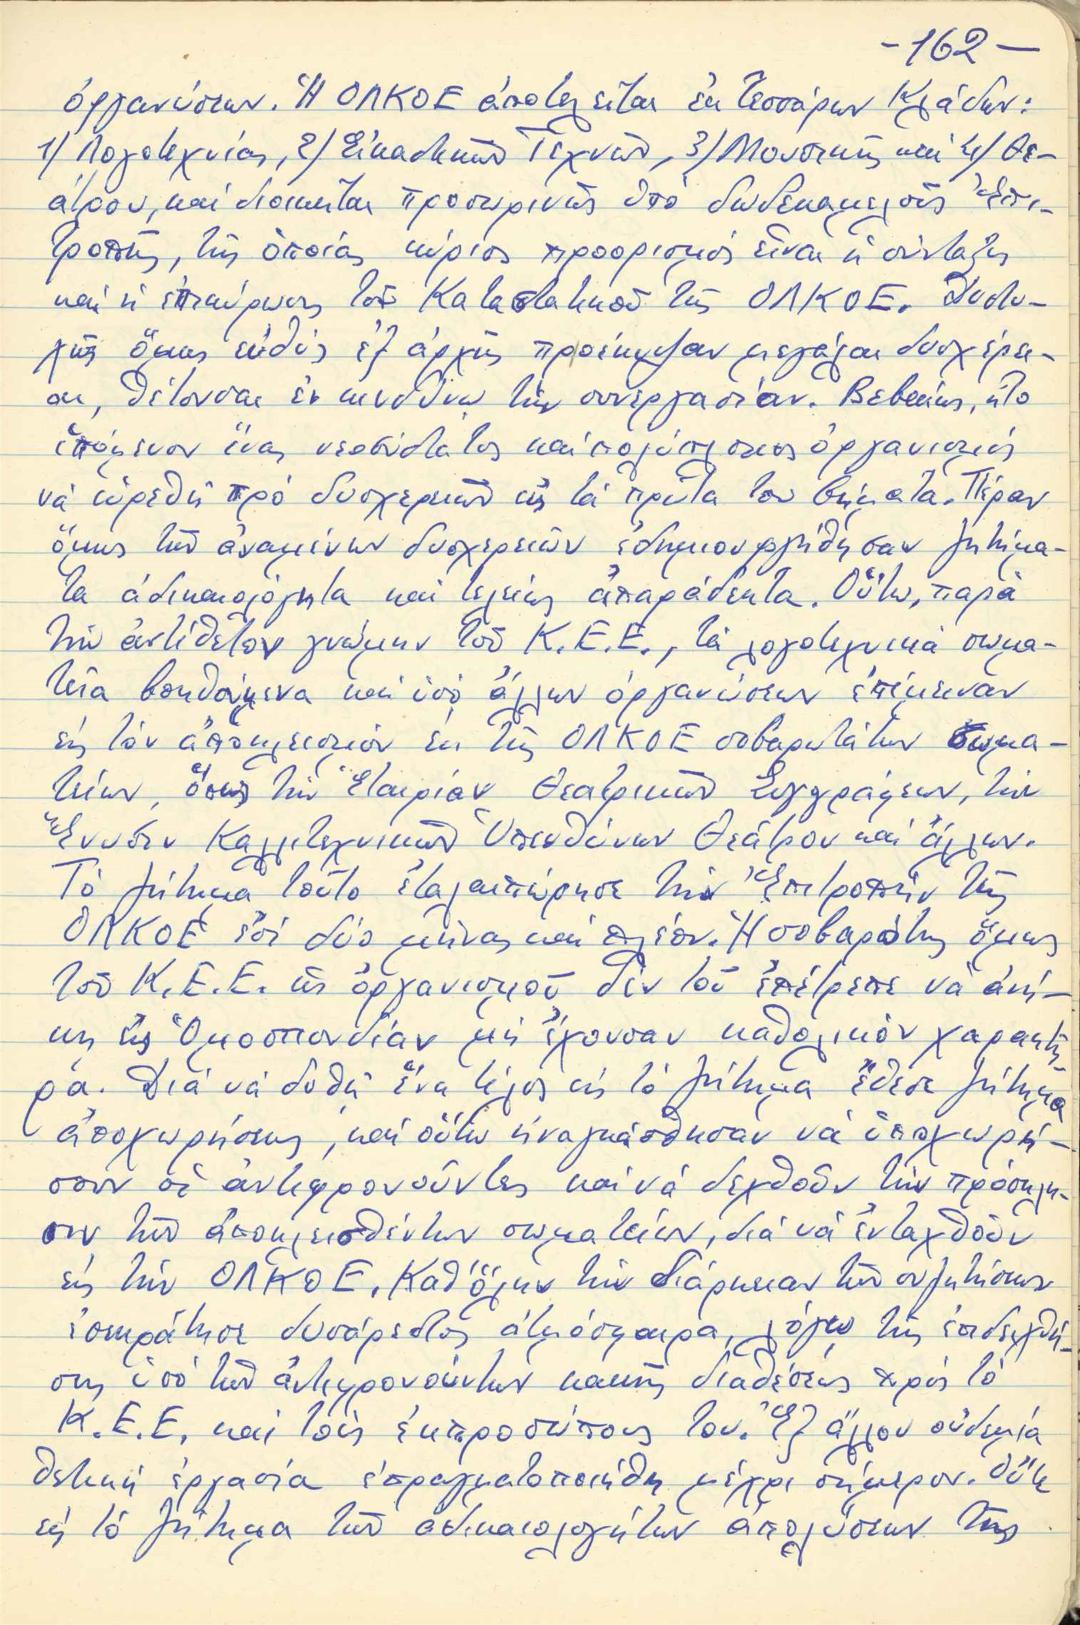 -162-
ὀργανώσεων. Ἡ ΟΛΚΟΕ ἀποτελεῖται ἐκ τεσσάρων Κλάδων:
1/ Λογοτεχνίας, 2/ Εἰκαστικῶν Τεχνῶν, 3/ Μουσικῆς καί 4/ Θε-
άτρου, καί διοικεῖται προσωρινῶς ὑπό δωδεκαμελοῦς Ἐπι-
τροπῆς, τῆς ὁποίας κύριος προορισμός εἶναι ἡ σύνταξις
καί ἡ ἐπικύρωσις τοῦ Καταστατικοῦ τῆς ΟΛΚΟΕ. Δυστυ-
χῶς ὅμως εὐθύς ἐξ ἀρχῆς προέκυψαν μεγάλαι δυσχέρει-
αι, θέτουσαι ἐν κινδύνῳ τήν συνεργασίαν. Βεβαίως, ἦτο
ἑπόμενον ἕνας νεοσύστατος καί πολύπλοκος ὀργανισμός
νά εὑρεθῇ πρό δυσχερειῶν εἰς τά πρῶτα του βήματα. Πέραν
ὅμως τῶν ἀναμενομένων δυσχερειῶν ἐδημιουργήθησαν ζητήμα-
τα ἀδικαιολόγητα καί τελείως ἀπαράδεκτα. Οὕτω, παρά
τήν ἀντίθετον γνώμην τοῦ Κ.Ε.Ε., τά λογοτεχνικά σωμα-
τεῖα βοηθούμενα καί ὑπό ἄλλων ὀργανώσεων ἐπέμειναν
εἰς τόν ἀποκλεισμόν ἐκ τῆς ΟΛΚΟΕ σοβαρωτάτων σωμα-
τείων, ὅπως τήν Ἑταιρίαν Θεατρικῶν Συγγραφέων, τήν
Ἕνωσιν Καλλιτεχνικῶν Ὑπευθύνων Θεάτρου καί ἄλλων.
Τό ζήτημα τοῦτο ἐταλαιπώρησε τήν Ἐπιτροπήν τῆς
ΟΛΚΟΕ ἐπί δύο μῆνας καί πλέον. Ἡ σοβαρότης ὅμως
τοῦ Κ.Ε.Ε. ὡς ὀργανισμοῦ δέν τοῦ ἐπέτρεπε νά ἀνή-
κῃ εἰς Ὁμοσπονδίαν μή ἔχουσαν καθολικόν χαρακτῆ-
ρα. Διά νά δοθῇ ἕνα τέλος εἰς τό ζήτημα ἔθεσε ζήτημα
ἀποχωρήσεως, καί οὕτω ἠναγκάσθησαν νά ὑποχωρή-
σουν οἱ ἀντιφρονοῦντες καί νά δεχθοῦν τήν πρόσκλη-
σιν τῶν ἀποκλεισθέντων σωματείων, διά νά ἐνταχθοῦν
εἰς τήν ΟΛΚΟΕ. Καθ' ὅλην τήν διάρκειαν τῶν συζητήσεων
ἐπεκράτησε δυσάρεστος ἀτμόσφαιρα, λόγῳ τῆς ἐπιδειχθεί-
σης ὑπό τῶν ἀντιφρονούντων κακῆς διαθέσεως πρός τό
Κ.Ε.Ε. καί τούς ἐκπροσώπους του. Ἐξ ἄλλου οὐδεμία
θετική ἐργασία ἐπραγματοποιήθη μέχρι σήμερον. Οὔτε
εἰς τό ζήτημα τῶν ἀδικαιολογήτων ἀπολύσεων τῆς